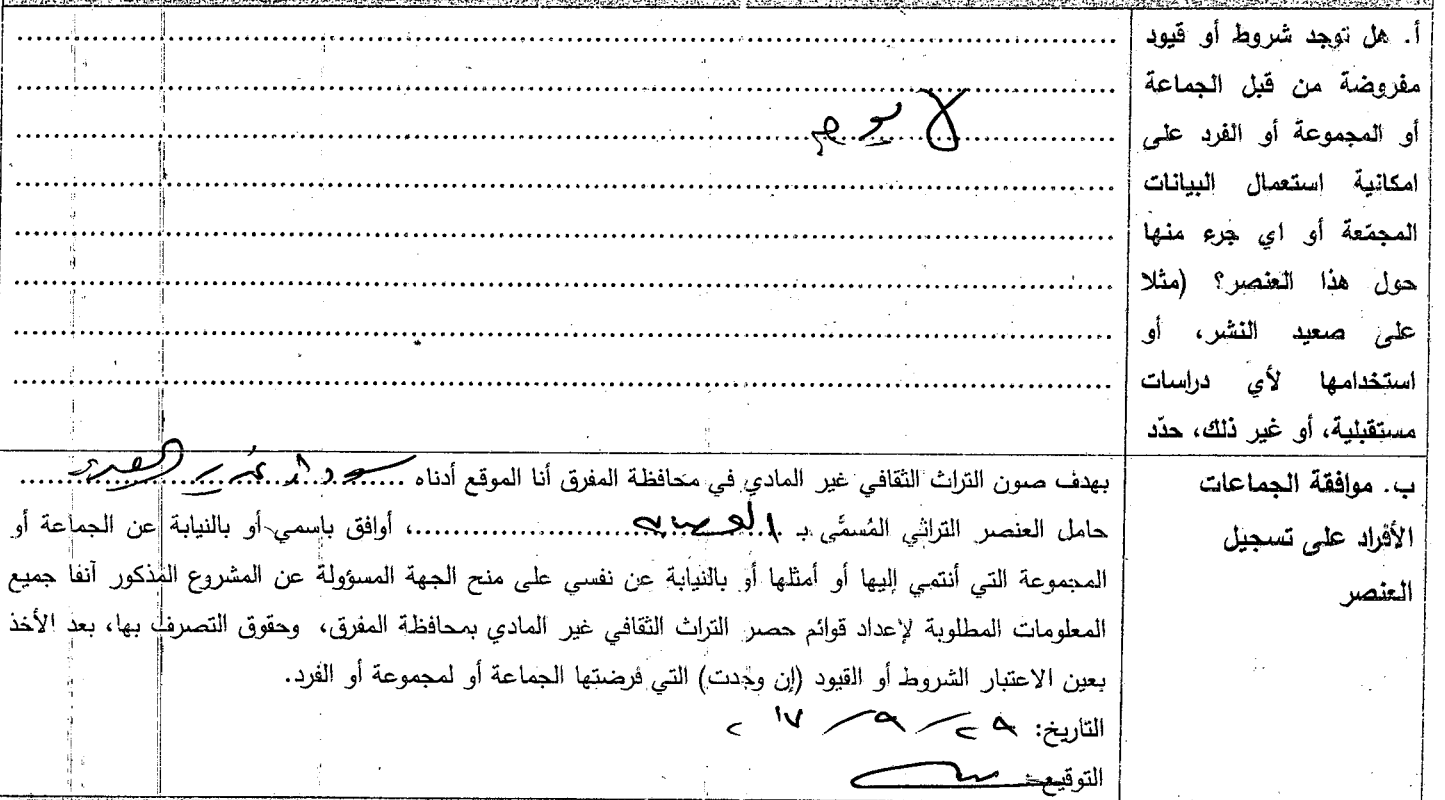 أ. هل توجد شروط أو قيود
مفروضة من قبل الجماعة
أو المجموعة أو الفرد على
امكانية استعمال البيانات
المجمّعة أو اي جزء منها
حول هذا العنصر؟ (مثلا
على صعيد النشر، أو
استخدامها لأي دراسات
مستقبلية، أو غير ذلك، حدّد
لا يوجد
ب. موافقة الجماعات
الأفراد على تسجيل
العنصر
بهدف صون التراث الثقافي غير المادي في محافظة المفرق أنا الموقع أدناه
حامل العنصر التراثي المُسمَّى بـ ، أوافق باسمي أو بالنيابة عن الجماعة أو
المجموعة التي أنتمي إليها أو أمثلها أو بالنيابة عن نفسي على منح الجهة المسؤولة عن المشروع المذكور آنفا جميع
المعلومات المطلوبة لإعداد قوائم حصر التراث الثقافي غير المادي بمحافظة المفرق، وحقوق التصرف بها، بعد الأخذ
بعين الاعتبار الشروط أو القيود (إن وجدت) التي فرضتها الجماعة أو لمجموعة أو الفرد.
التاريخ: ٢٩ / ٩ / ٢٠١٧
التوقيع: